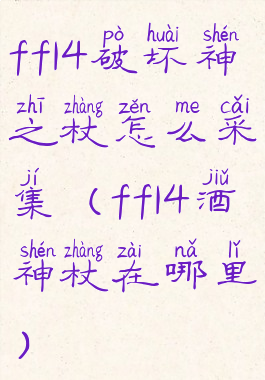 pò huài shén
ff14破坏神
zhī zhàng zěn me cǎi
之杖怎么采
jí jiǔ
集（ff14酒
shén zhàng zài nǎ lǐ
神杖在哪里
）